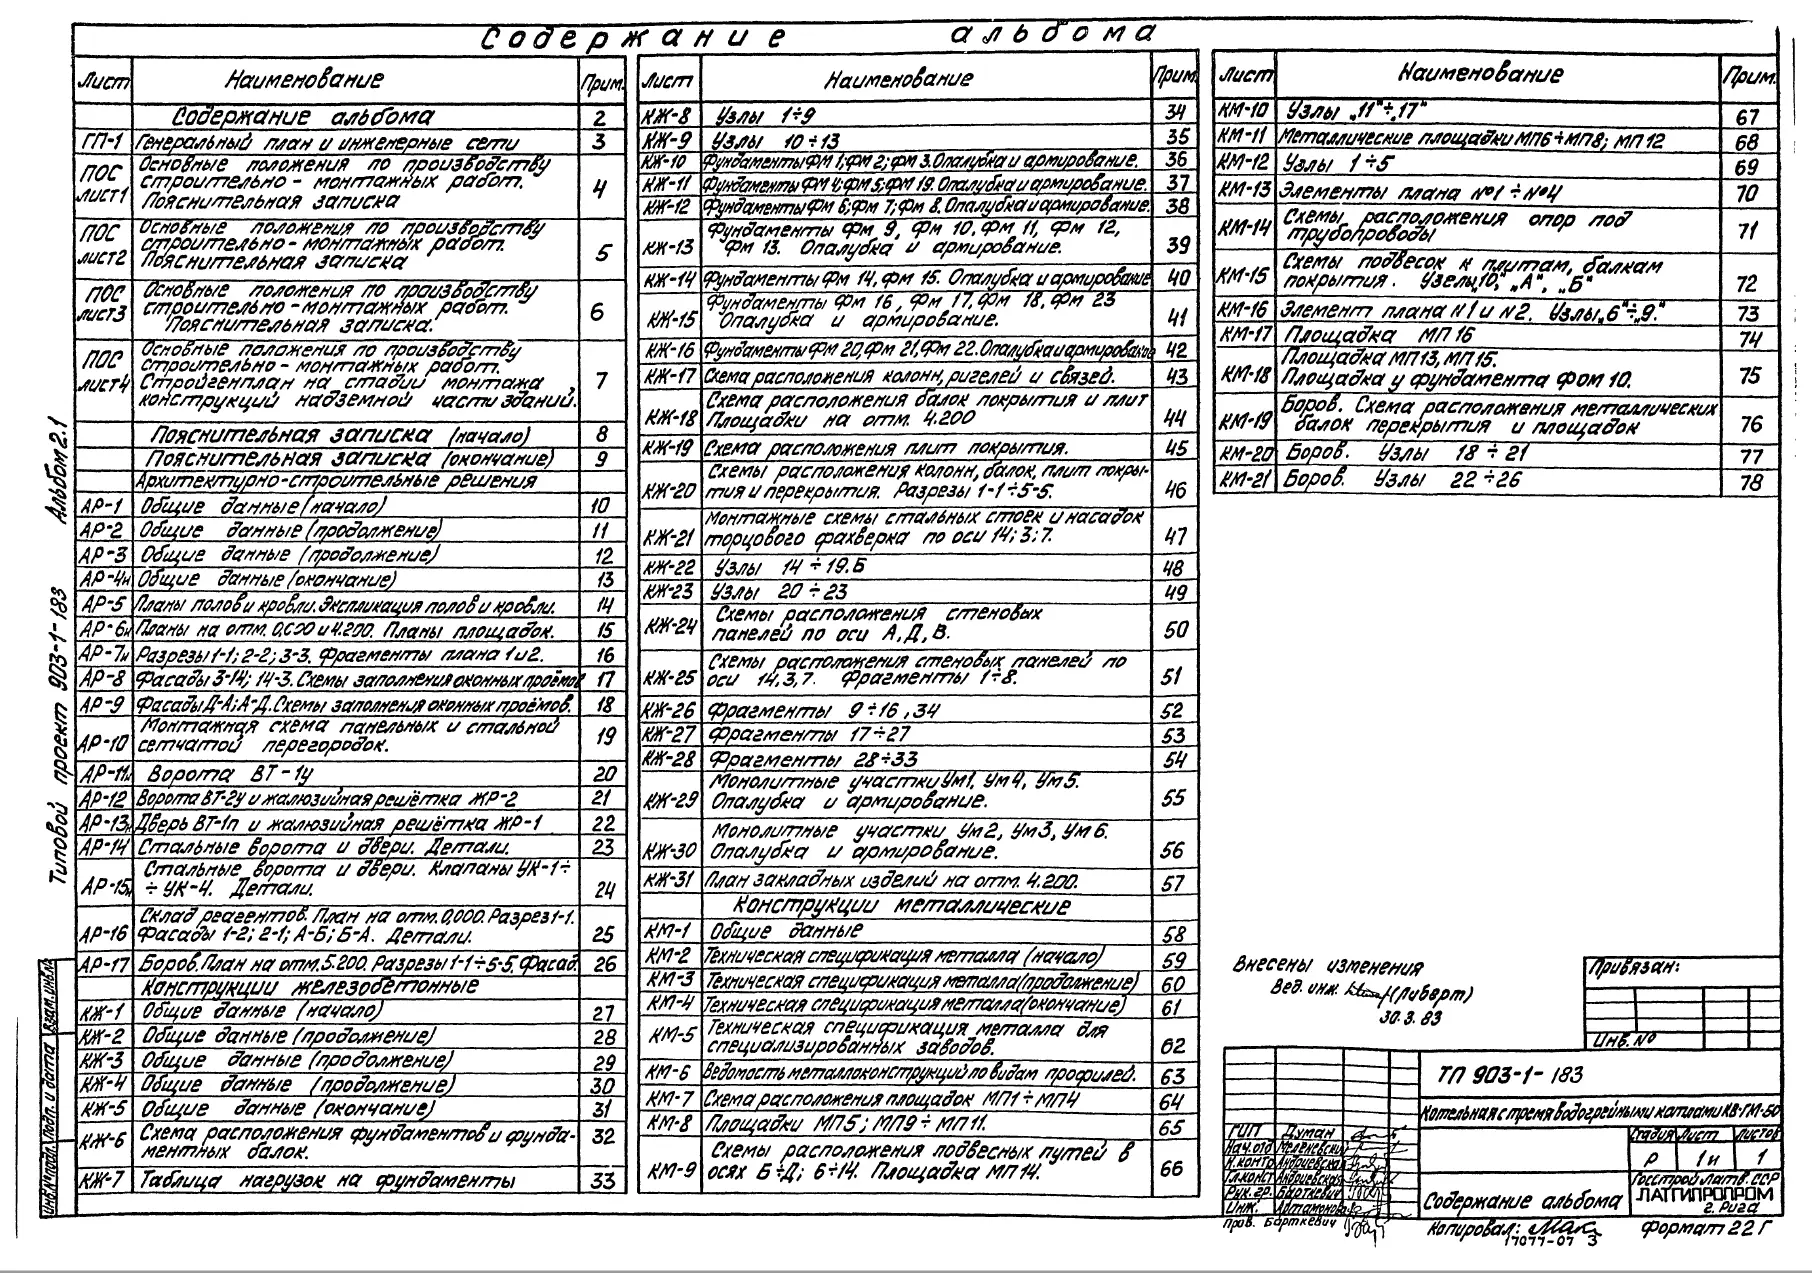 Содержание альбома
Лист Наименование Прим.
Содержание альбома 2
ГП-1 Генеральный план и инженерные сети 3
ПОС лист1 Основные положения по производству
строительно - монтажных работ.
Пояснительная записка 4
ПОС лист2 Основные положения по производству
строительно - монтажных работ.
Пояснительная записка 5
ПОС лист3 Основные положения по производству
строительно - монтажных работ.
Пояснительная записка. 6
ПОС лист4 Основные положения по производству
строительно - монтажных работ.
Стройгенплан на стадии монтажа
конструкций надземной части зданий. 7
Пояснительная записка (начало) 8
Пояснительная записка (окончание) 9
Архитектурно-строительные решения
АР-1 Общие данные (начало) 10
АР-2 Общие данные (продолжение) 11
АР-3 Общие данные (продолжение) 12
АР-4и Общие данные (окончание) 13
АР-5 Планы полов и кровли. Экспликация полов и кровли. 14
АР-6и Планы на отм. 0.000 и 4.200. Планы площадок. 15
АР-7и Разрезы 1-1; 2-2; 3-3. Фрагменты плана 1 и 2. 16
АР-8 Фасады 3-14; 14-3. Схемы заполнения оконных проёмов 17
АР-9 Фасады Д-А; А-Д. Схемы заполнения оконных проёмов. 18
АР-10 Монтажная схема панельных и стальной
сетчатой перегородок. 19
АР-11и Ворота ВТ-1у 20
АР-12 Ворота ВТ-2у и жалюзийная решётка ЖР-2 21
АР-13и Дверь ВТ-1п и жалюзийная решётка ЖР-1 22
АР-14 Стальные ворота и двери. Детали. 23
АР-15и Стальные ворота и двери. Клапаны УК-1÷
÷ УК-4. Детали. 24
АР-16 Склад реагентов. План на отм. 0,000. Разрез 1-1.
Фасады 1-2; 2-1; А-Б; Б-А. Детали. 25
АР-17 Боров. План на отм. 5.200. Разрезы 1-1÷5-5. Фасад. 26
Конструкции железобетонные
КЖ-1 Общие данные (начало) 27
КЖ-2 Общие данные (продолжение) 28
КЖ-3 Общие данные (продолжение) 29
КЖ-4 Общие данные (продолжение) 30
КЖ-5 Общие данные (окончание) 31
КЖ-6 Схема расположения фундаментов и фунда-
ментных балок. 32
КЖ-7 Таблица нагрузок на фундаменты 33
Лист Наименование Прим.
КЖ-8 Узлы 1÷9 34
КЖ-9 Узлы 10÷13 35
КЖ-10 Фундаменты ФМ 1; фм 2; фм 3. Опалубка и армирование. 36
КЖ-11 Фундаменты ФМ 4; фм 5; фм 19. Опалубка и армирование. 37
КЖ-12 Фундаменты Фм 6; фм 7; фм 8. Опалубка и армирование. 38
КЖ-13 Фундаменты Фм 9, Фм 10, Фм 11, Фм 12,
Фм 13. Опалубка и армирование. 39
КЖ-14 Фундаменты Фм 14, фм 15. Опалубка и армирование 40
КЖ-15 Фундаменты Фм 16, Фм 17, Фм 18, Фм 23
Опалубка и армирование. 41
КЖ-16 Фундаменты Фм 20, Фм 21, Фм 22. Опалубка и армирование 42
КЖ-17 Схема расположения колонн, ригелей и связей. 43
КЖ-18 Схема расположения балок покрытия и плит
Площадки на отм. 4.200 44
КЖ-19 Схема расположения плит покрытия. 45
КЖ-20 Схемы расположения колонн, балок, плит покры-
тия и перекрытия. Разрезы 1-1÷5-5. 46
КЖ-21 Монтажные схемы стальных стоек и насадок
торцового фахверка по оси 14; 3; 7. 47
КЖ-22 Узлы 14 ÷ 19.Б 48
КЖ-23 Узлы 20 ÷ 23 49
КЖ-24 Схемы расположения стеновых
панелей по оси А, Д, В. 50
КЖ-25 Схемы расположения стеновых панелей по
оси 14, 3, 7. Фрагменты 1÷8. 51
КЖ-26 Фрагменты 9÷16, 34 52
КЖ-27 Фрагменты 17÷27 53
КЖ-28 Фрагменты 28÷33 54
КЖ-29 Монолитные участки Ум1, Ум4, Ум5.
Опалубка и армирование. 55
КЖ-30 Монолитные участки Ум2, Ум3, Ум6.
Опалубка и армирование. 56
КЖ-31 План закладных изделий на отм. 4.200. 57
Конструкции металлические
КМ-1 Общие данные 58
КМ-2 Техническая спецификация металла (начало) 59
КМ-3 Техническая спецификация металла (продолжение) 60
КМ-4 Техническая спецификация металла (окончание) 61
КМ-5 Техническая спецификация металла для
специализированных заводов. 62
КМ-6 Ведомость металлоконструкций по видам профилей. 63
КМ-7 Схема расположения площадок МП1÷МП4 64
КМ-8 Площадки МП5; МП9÷МП11. 65
КМ-9 Схемы расположения подвесных путей в
осях Б÷Д; 6÷14. Площадка МП14. 66
Лист Наименование Прим.
КМ-10 Узлы „11"÷„17" 67
КМ-11 Металлические площадки МП6÷МП8; МП12 68
КМ-12 Узлы 1÷5 69
КМ-13 Элементы плана №1÷№4 70
КМ-14 Схемы расположения опор под
трубопроводы 71
КМ-15 Схемы подвесок к плитам, балкам
покрытия. Узел „10", „А", „Б" 72
КМ-16 Элемент плана N1 и N2. Узлы „6"÷„9." 73
КМ-17 Площадка МП16 74
КМ-18 Площадка МП13, МП15.
Площадка у фундамента ФОМ 10. 75
КМ-19 Боров. Схема расположения металлических
балок перекрытия и площадок 76
КМ-20 Боров. Узлы 18÷21 77
КМ-21 Боров. Узлы 22÷26 78
Типовой проект 903-1-183 Альбом 2.1
Инв.№ подл. Подп. и дата Взам.инв.№
Внесены изменения
Вед. инж. (Либерт)
30.3.83
Привязан:
Инв. №
ТП 903-1-183
Котельная с тремя водогрейными котлами КВ-ГМ-50
ГИП Думан
Нач.отд Меленевский
Н.контр Андриевская
Гл.конст Андриевская
Рук.гр. Барткевич
Инж. Артамонова
Пров. Барткевич
Стадия Лист Листов
Р 1и 1
Содержание альбома
Госстрой Латв. ССР
ЛАТГИПРОПРОМ
г. Рига
Копировал: Формат 22Г
17077-07 3